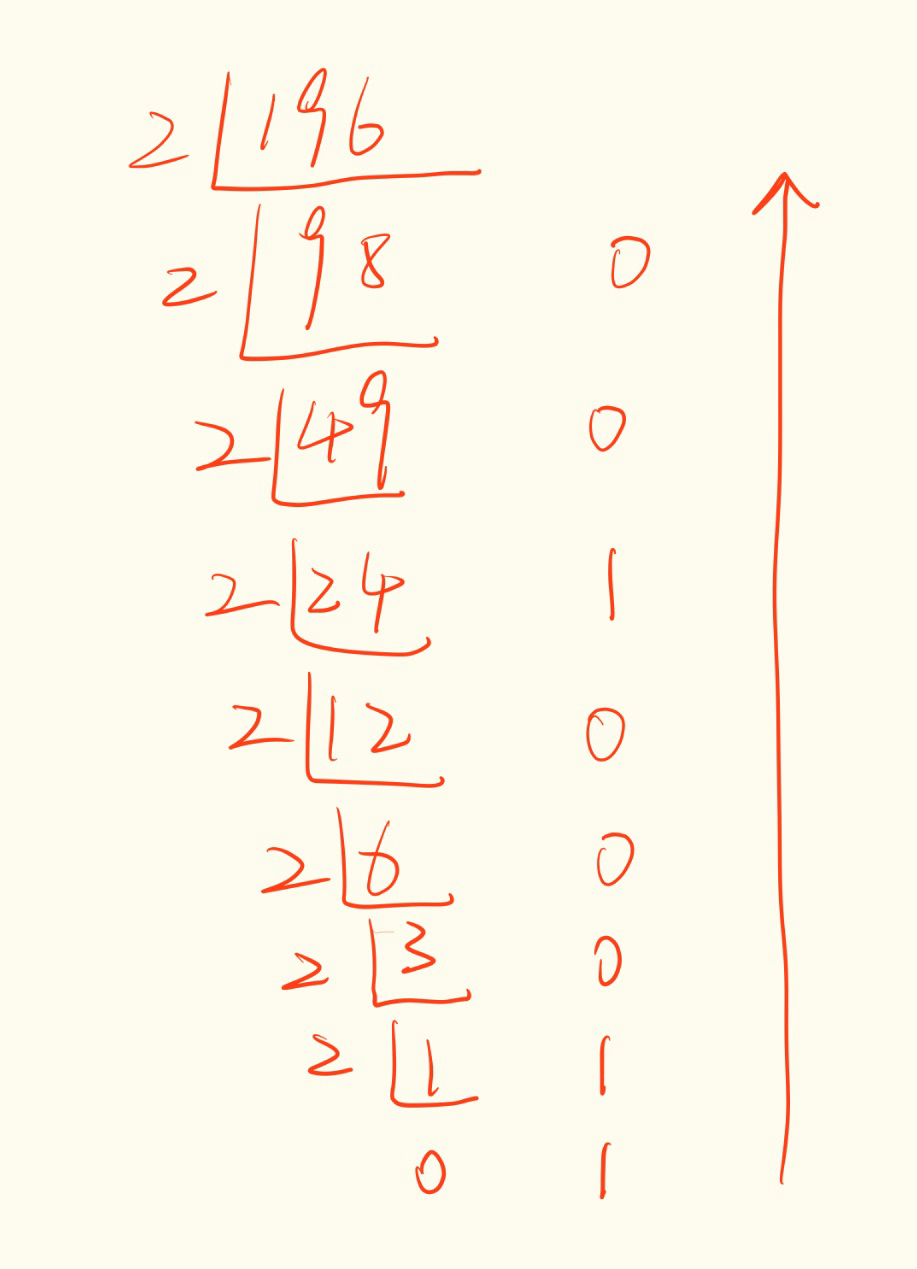 2 196
2 98 0
2 49 0
2 24 1
2 12 0
2 6 0
2 3 0
2 1 1
0 1